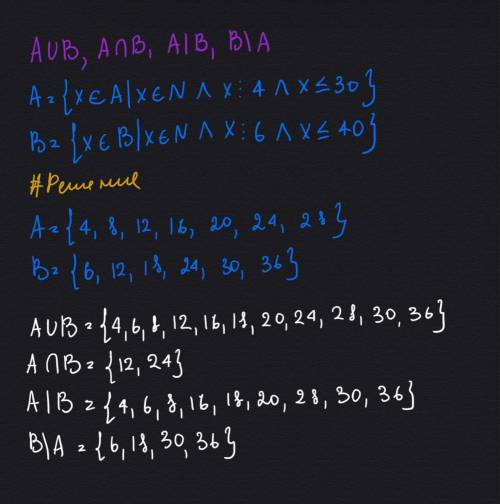 A∪B, A∩B, A|B, B\A
A={x∈A|x∈N ∧ x⋮4 ∧ x≤30}
B={x∈B|x∈N ∧ x⋮6 ∧ x≤40}
#Решение
A={4, 8, 12, 16, 20, 24, 28}
B={6, 12, 18, 24, 30, 36}
A∪B={4,6,8,12,16,18,20,24,28,30,36}
A∩B={12,24}
A|B={4,6,8,16,18,20,28,30,36}
B\A={6,18,30,36}